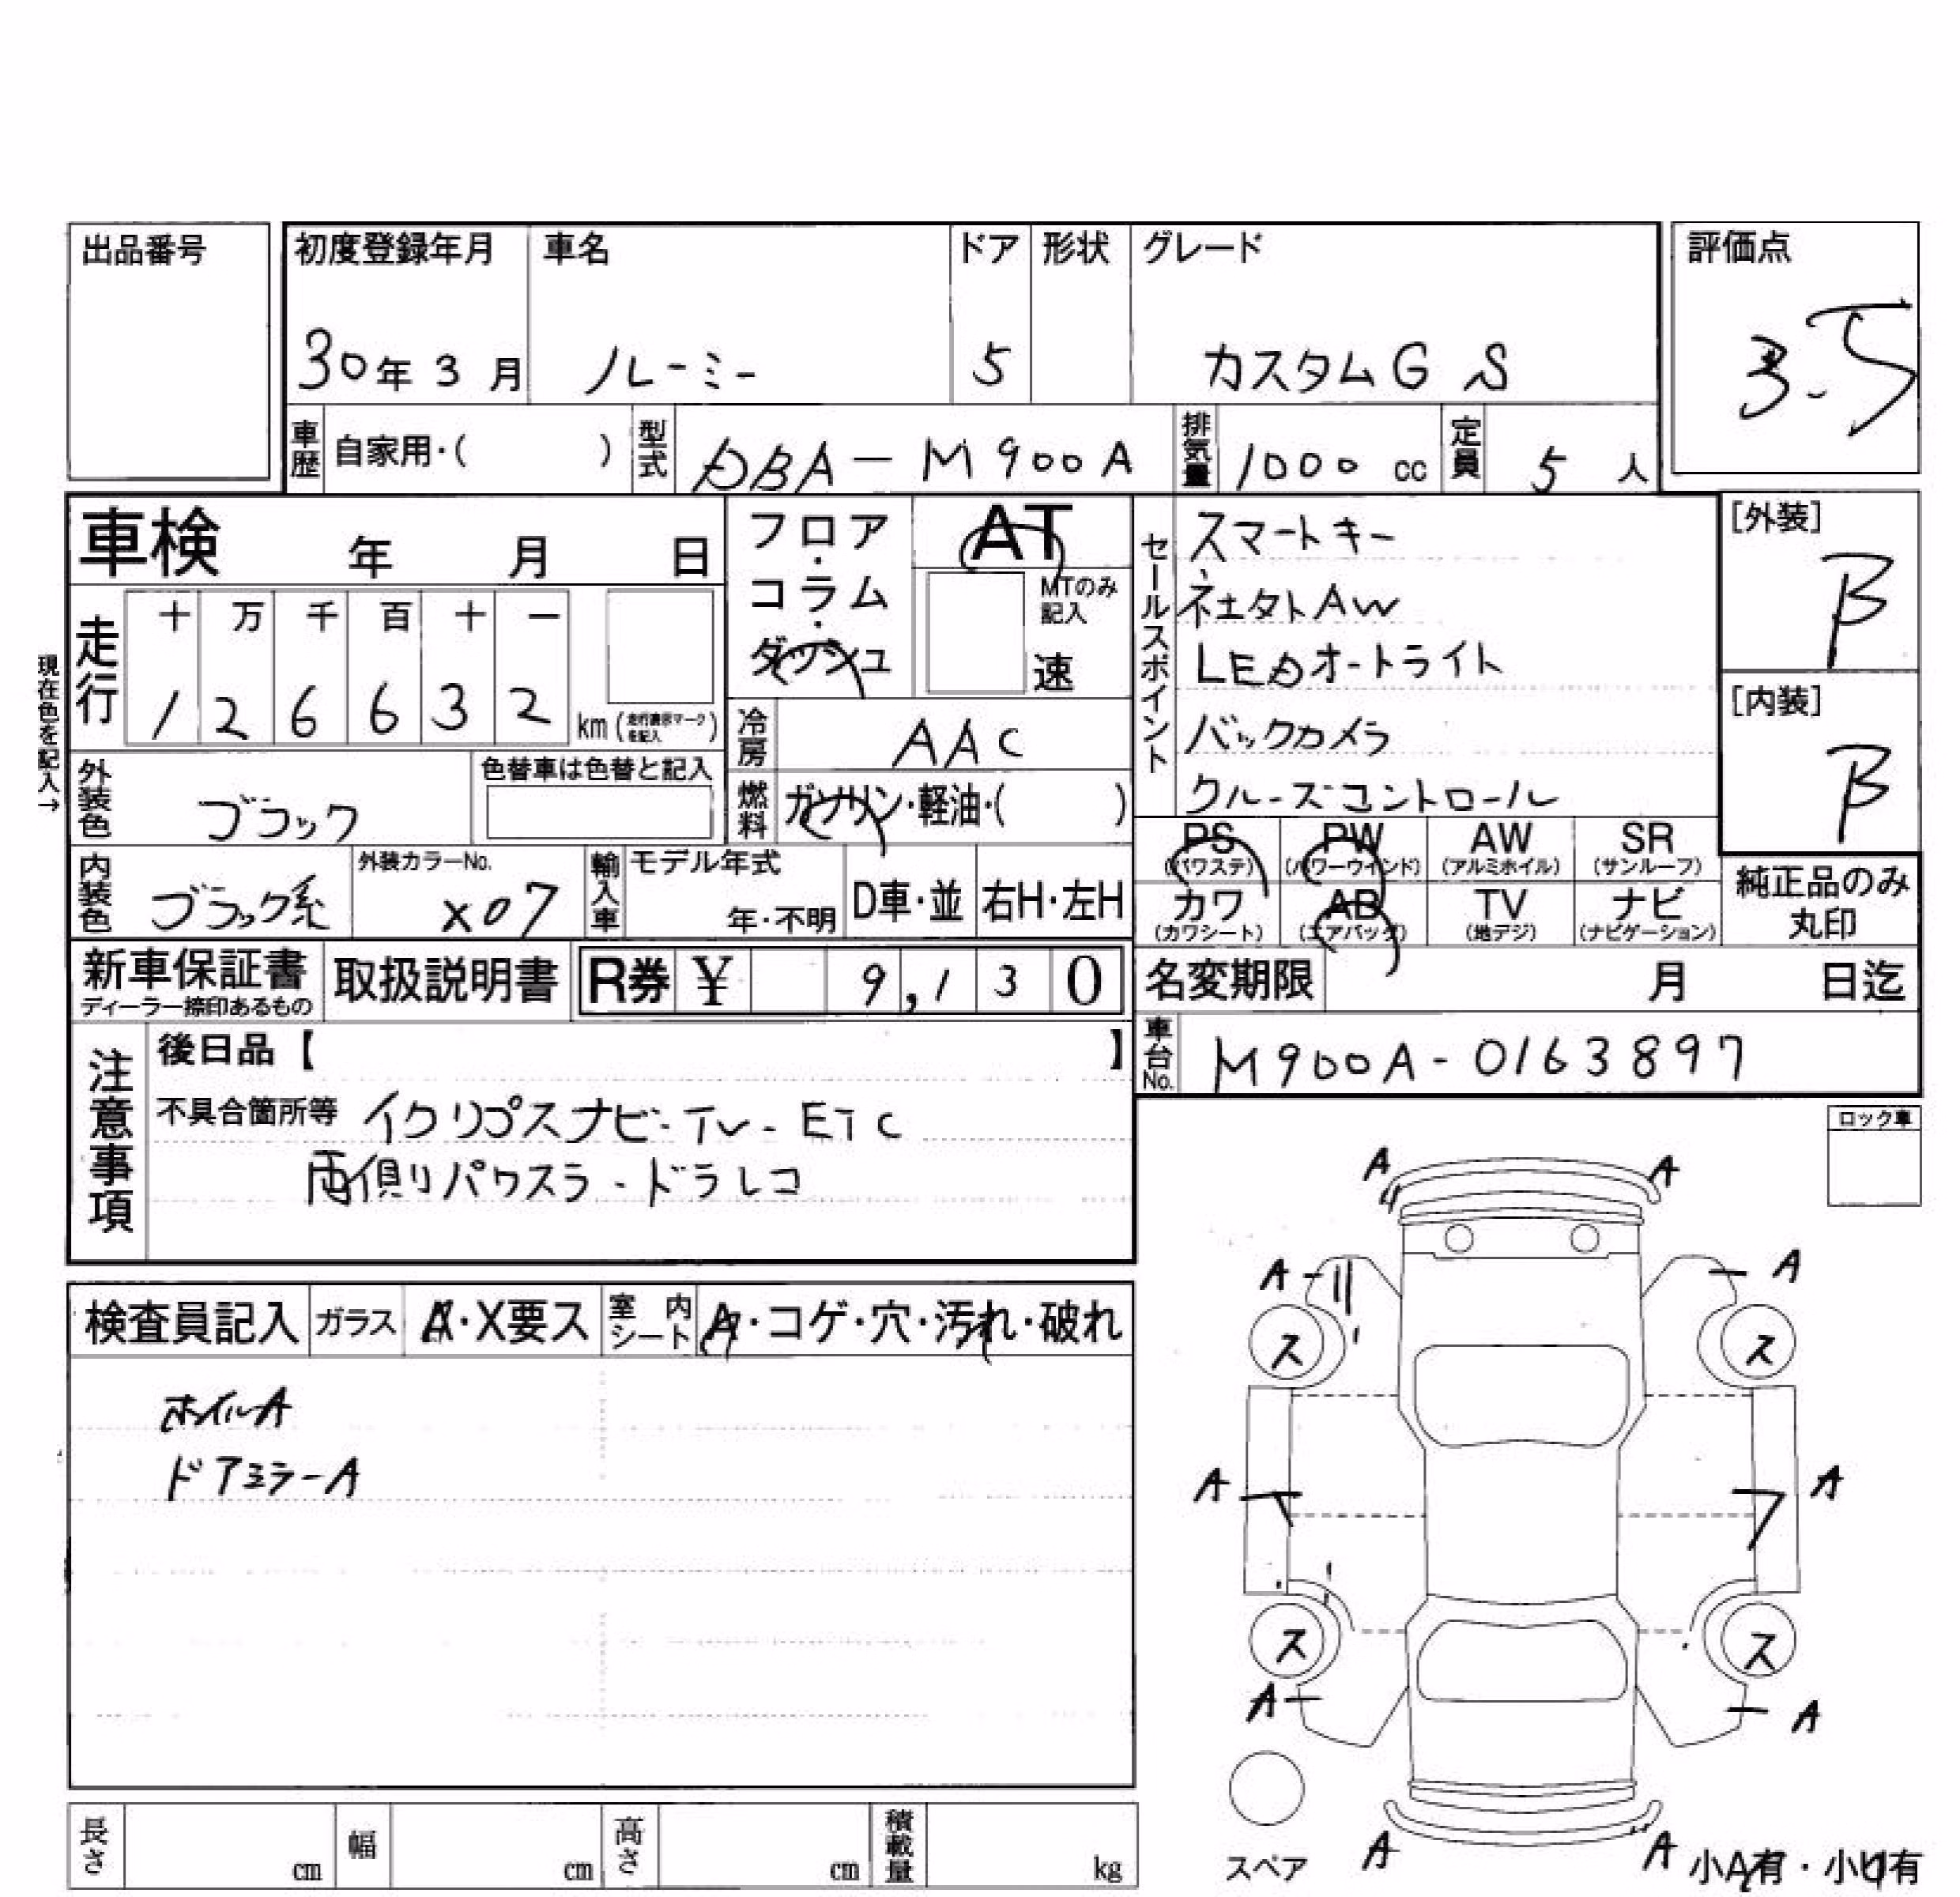 出品番号
初度登録年月 車名 ドア 形状 グレード 評価点
30年 3 月 ルーミー 5 カスタムG S 3.5
車歴 自家用・( ) 型式 DBA-M900A 排気量 1000 cc 定員 5 人
車検 年 月 日
フロア・コラム・ダッシュ AT
MTのみ記入 速
セールスポイント
スマートキー
ネエタトAW
LEDオートライト
バックカメラ
クルーズコントロール
[外装] B
[内装] B
現在色を記入→
走行 十 万 千 百 十 一
1 2 6 6 3 2 km (走行表示マークを記入)
冷房 AAC
外装色 ブラック 色替車は色替と記入
燃料 ガソリン・軽油・( )
PS (パワステ) PW (パワーウインド) AW (アルミホイル) SR (サンルーフ)
カワ (カワシート) AB (エアバッグ) TV (地デジ) ナビ (ナビゲーション)
純正品のみ丸印
内装色 ブラック系 外装カラーNo. X07 輸入車 モデル年式 年・不明 D車・並 右H・左H
新車保証書 ディーラー捺印あるもの 取扱説明書 R券 ¥ 9,130
名変期限 月 日迄
車台No. M900A-0163897
注意事項
後日品【 】
不具合箇所等 イクリプスナビ-TV-ETC
両側パワスラ-ドラレコ
ロック車
検査員記入 ガラス A・X要ス 室内シート A・コゲ・穴・汚れ・破れ
ホイルA
ドアミラーA
A A
A A
ス ス
A A
ス ス
A A
スペア A A 小A有・小U有
長さ cm 幅 cm 高さ cm 積載量 kg